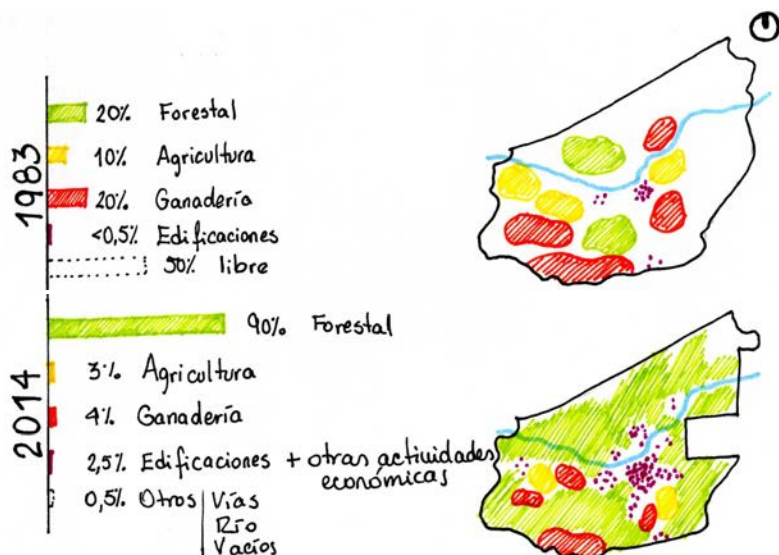 1983
20% Forestal
10% Agricultura
20% Ganadería
<0,5% Edificaciones
50% libre
2014
90% Forestal
3% Agricultura
4% Ganadería
2,5% Edificaciones + otras actividades
económicas
0,5% Otros Vías
Río
Vacíos